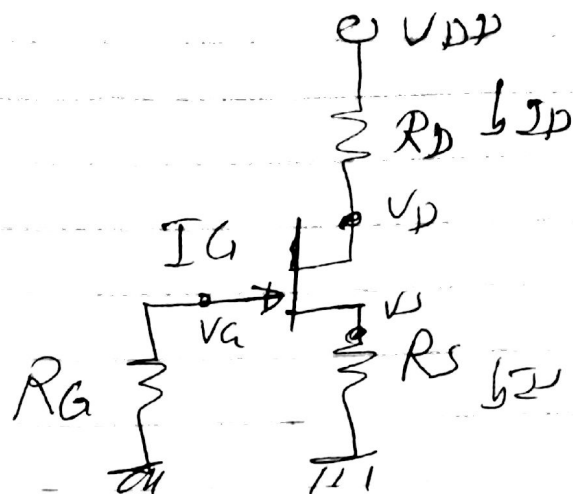 VDD
RD ID
VD
IG
VG
VS
RG
RS IS